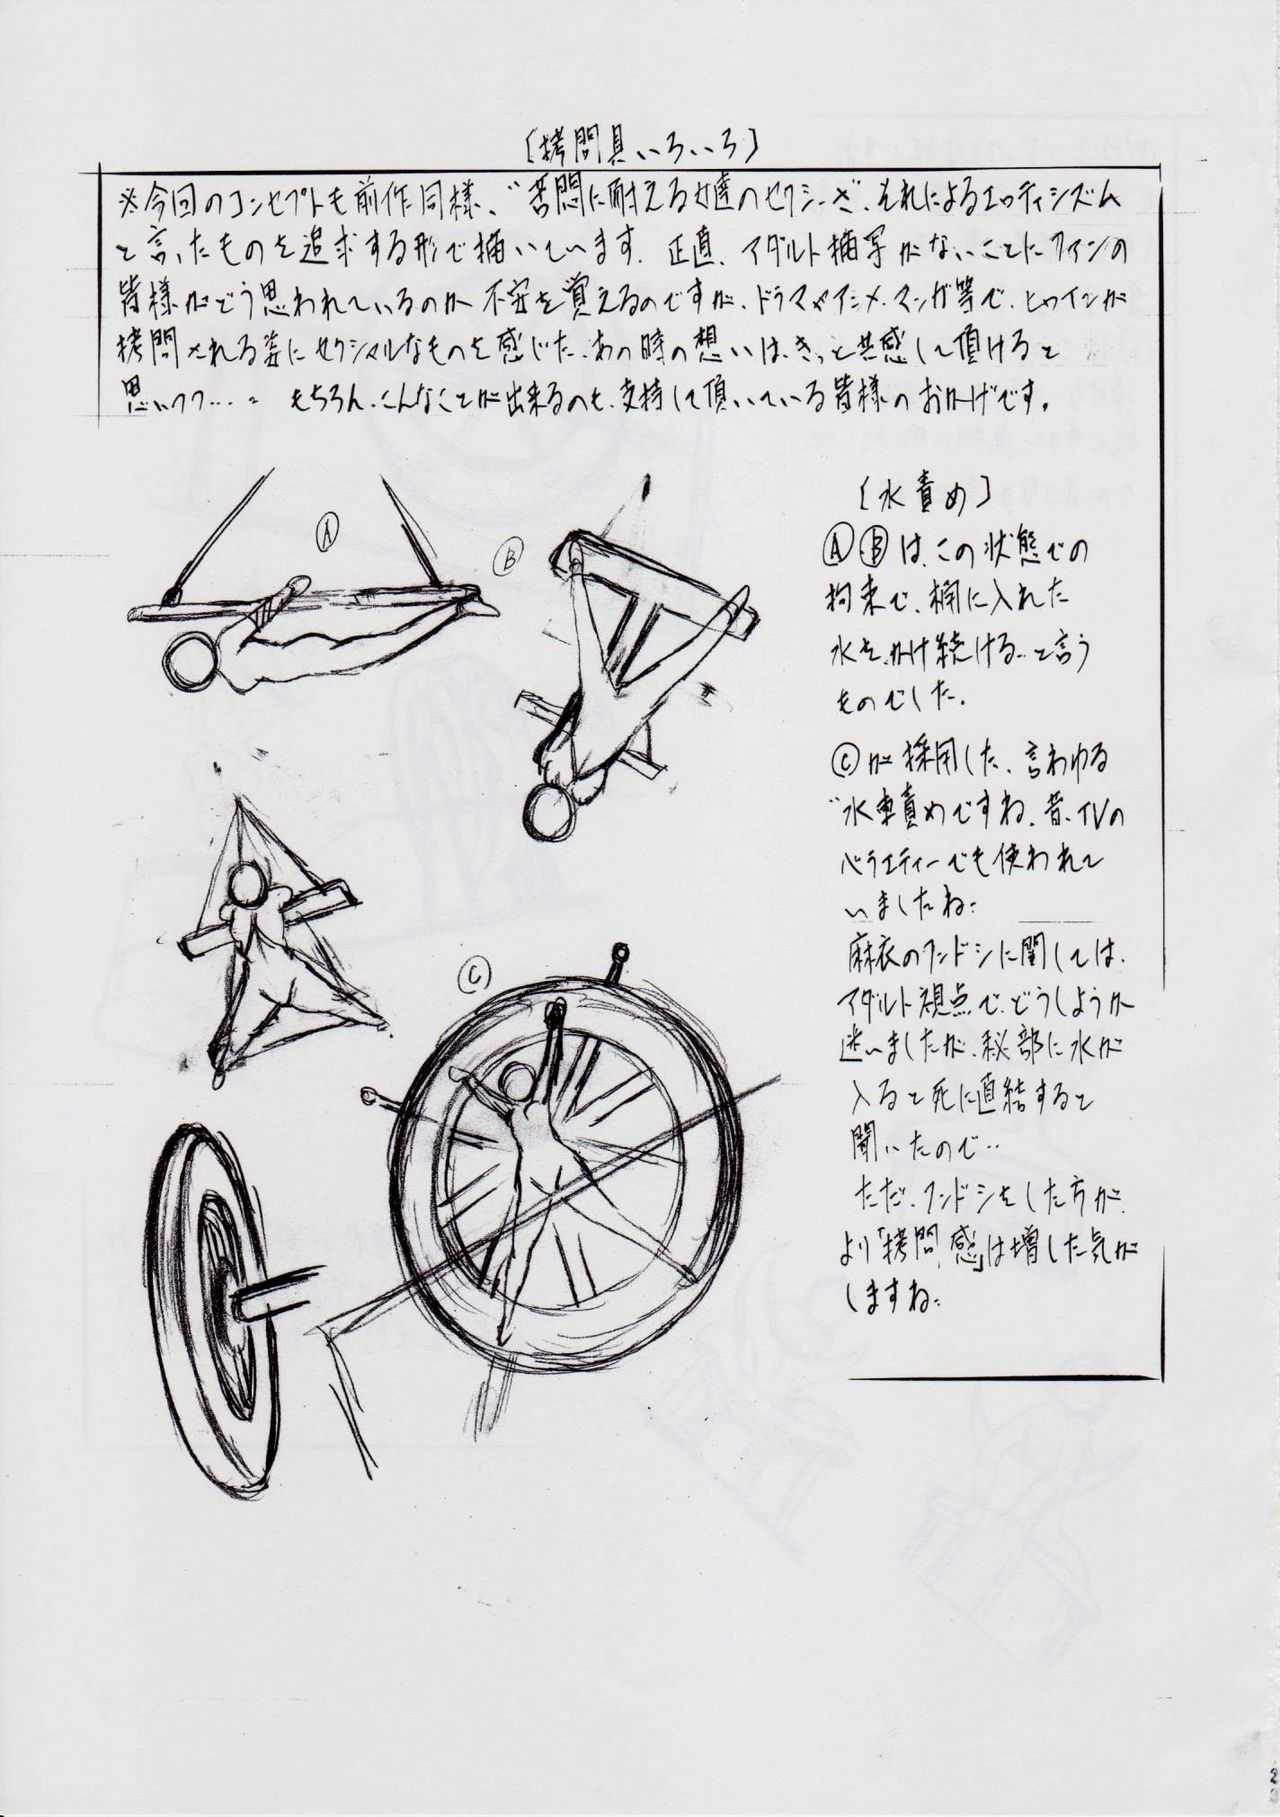 〔拷問具いろいろ〕
※今回のコンセプトも前作同様、"苦悶に耐える女達のセクシーさ、それによるエロティシズム
と言ったものを追求する形で描いています。正直、アダルト描写がないことにファンの
皆様がどう思われているのか不安を覚えるのですが、ドラマやアニメ、マンガ等で、ヒロインが
拷問される姿にセクシャルなものを感じた、あの時の想いは、きっと共感して頂けると
思いつつ…。 もちろん、こんなことが出来るのも、支持して頂いている皆様のおかげです。
〔水責め〕
Ⓐ Ⓑは、この状態での
拘束で、桶に入れた
水を、かけ続ける…と言う
ものでした。
Ⓒが採用した、言わゆる
"水車責めですね、昔、TVの
バラエティーでも使われて
いましたね…
麻衣のフンドシに関しては、
アダルト視点で、どうしようか
迷いましたが、秘部に水が
入ると死に直結すると
聞いたので…
ただ、フンドシをした方が、
より「拷問感」は増した気が
しますね…
Ⓐ
Ⓑ
Ⓒ